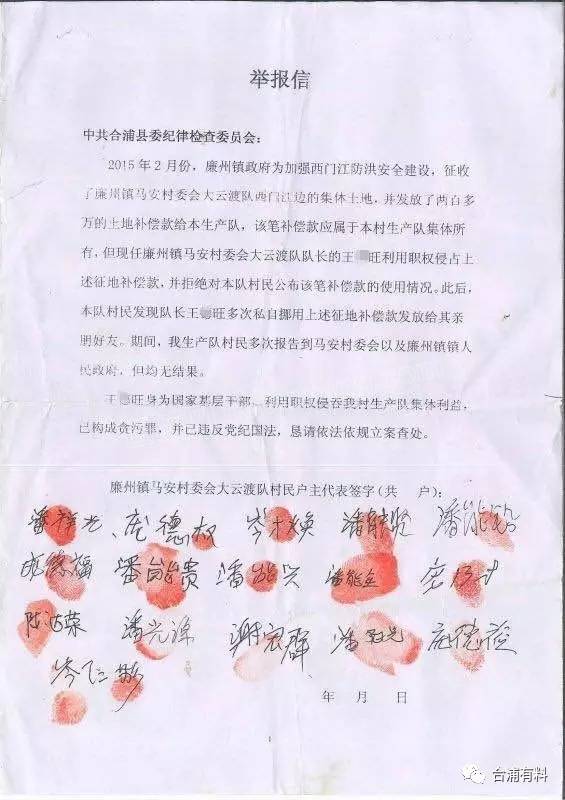 举报信
中共合浦县委纪律检查委员会：
2015年2月份，廉州镇政府为加强西门江防洪安全建设，征收
了廉州镇马安村委会大云渡队西门江边的集体土地，并发放了两百多
万的土地补偿款给本生产队，该笔补偿款应属于本村生产队集体所
有，但现任廉州镇马安村委会大云渡队队长的王 旺利用职权侵占上
述征地补偿款，并拒绝对本队村民公布该笔补偿款的使用情况。此后，
本队村民发现队长王 旺多次私自挪用上述征地补偿款发放给其亲
朋好友。期间，我生产队村民多次报告到马安村委会以及廉州镇镇人
民政府，但均无结果。
王 旺身为国家基层干部、利用职权侵吞我村生产队集体利益，
已构成贪污罪，并已违反党纪国法，恳请依法依规立案查处。
廉州镇马安村委会大云渡队村民户主代表签字（共 户）：
潘祥光、庞德权 岑才焕 潘能贤
庞德福 潘能贵 潘能兴 潘能金
陈达荣 潘光源 谢家群 庞德俭
年 月 日
1
合浦有料